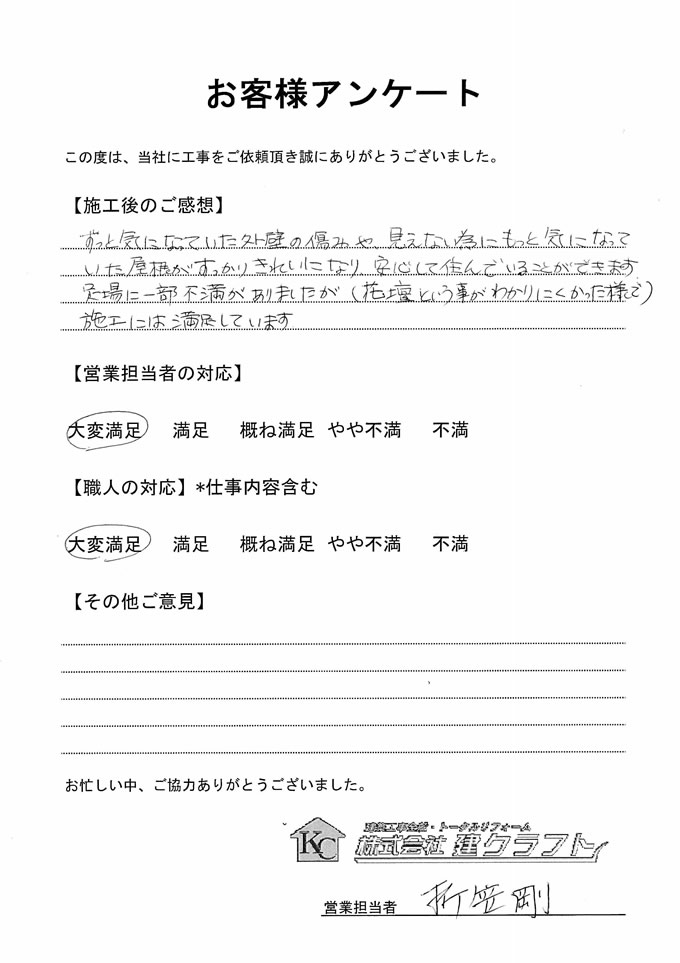 お客様アンケート
この度は、当社に工事をご依頼頂き誠にありがとうございました。
【施工後のご感想】
ずっと気になっていた外壁の傷みや、見えない為にもっと気になって
いた屋根がすっかりきれいになり、安心して住んでいることができます
足場に一部不満がありましたが(花壇という事がわかりにくかった様で)
施工には満足しています
【営業担当者の対応】
大変満足 満足 概ね満足 やや不満 不満
【職人の対応】*仕事内容含む
大変満足 満足 概ね満足 やや不満 不満
【その他ご意見】
お忙しい中、ご協力ありがとうございました。
建築工事全般・トータルリフォーム
KC 株式会社 建クラフト
営業担当者 折笠剛